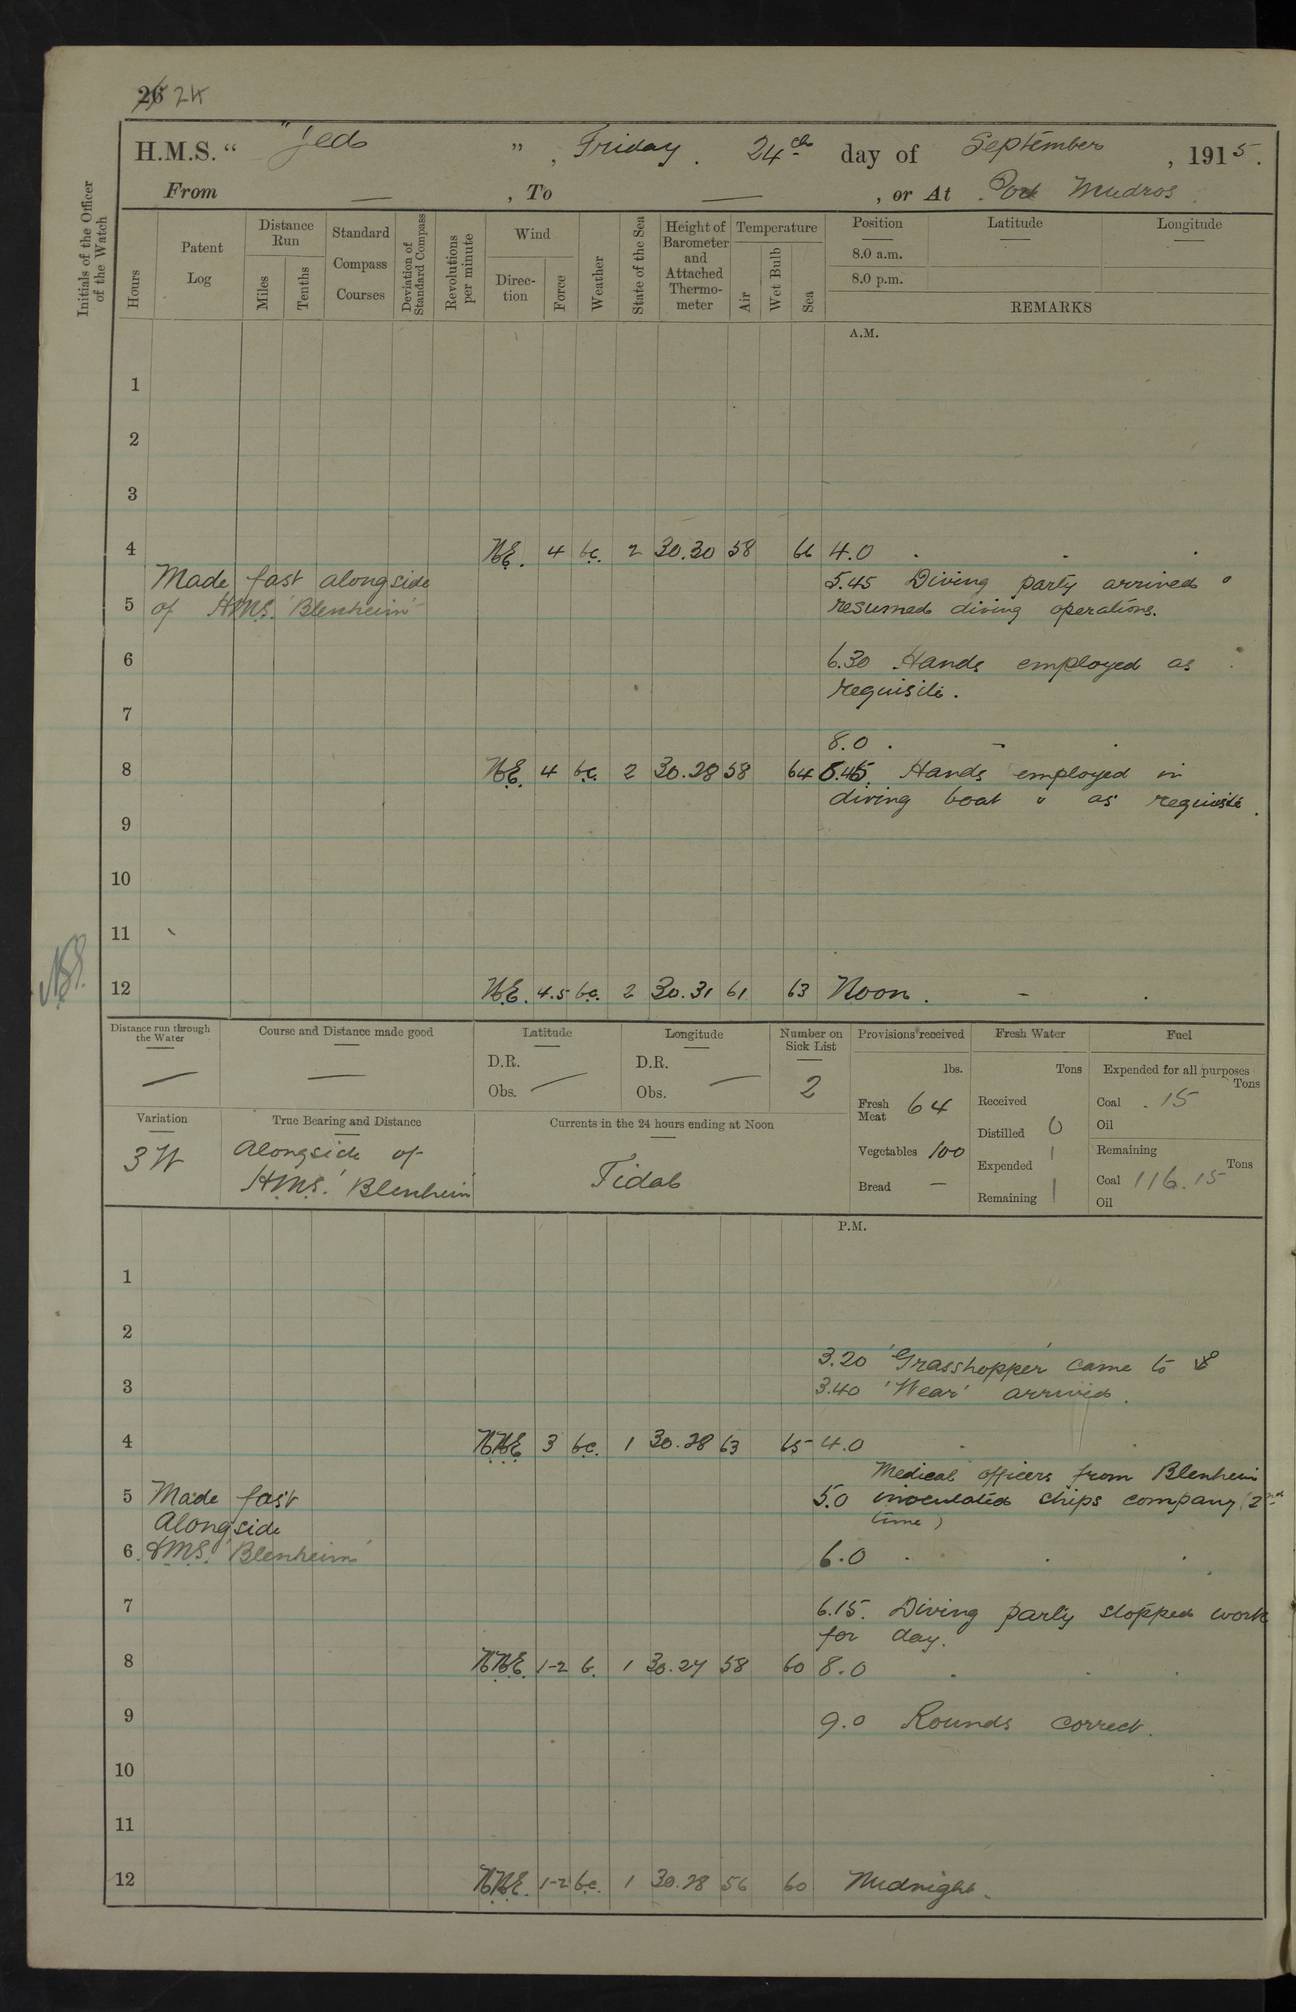 26 24
H.M.S. " "Jed " , Friday . 24th day of September , 1915.
From — , To — , or At Port Mudros
Initials of the Officer of the Watch
Hours
Patent Log
Distance Run
Miles
Tenths
Standard Compass Courses
Deviation of Standard Compass
Revolutions per minute
Wind
Direction
Force
Weather
State of the Sea
Height of Barometer and Attached Thermometer
Temperature
Air
Wet Bulb
Sea
Position Latitude Longitude
8.0 a.m.
8.0 p.m.
REMARKS
A.M.
1
2
3
4 N.E. 4 b.c. 2 30.30 58 66 4.0 . . .
Made fast alongside 5.45 Diving party arrived &
5 of H.M.S. 'Blenheim' resumed diving operations.
6 6.30 Hands employed as
requisite.
7
8.0 . - .
8 N.E. 4 b.c. 2 30.28 58 64 8.45 Hands employed in
diving boat & as requisite.
9
10
11
12 N.E. 4.5 b.c. 2 30.31 61 63 Noon . - .
Distance run through the Water —
Course and Distance made good —
Latitude
D.R.
Obs. —
Longitude
D.R.
Obs. —
Number on Sick List
2
Provisions received
lbs.
Fresh Meat 64
Vegetables 100
Bread —
Fresh Water
Tons
Received
Distilled 0
Expended 1
Remaining 1
Fuel
Expended for all purposes
Tons
Coal .15
Oil
Remaining
Tons
Coal 116.15
Oil
Variation
3 W
True Bearing and Distance
Alongside of
H.M.S. 'Blenheim
Currents in the 24 hours ending at Noon
Tidal
P.M.
1
2
3.20 'Grasshopper' came to
3 3.40 'Wear' arrived.
4 N.N.E. 3 b.c. 1 30.28 63 65 4.0 . .
Medical officers from Blenheim
5 Made fast 5.0 inoculated ships company (2nd
Alongside time)
6 H.M.S. 'Blenheim' 6.0 . . .
7 6.15. Diving party stopped work
for day.
8 N.N.E. 1-2 b. 1 30.27 58 60 8.0 . . .
9 9.0 Rounds correct.
10
11
12 N.N.E. 1-2 b.c. 1 30.28 56 60 Midnight.